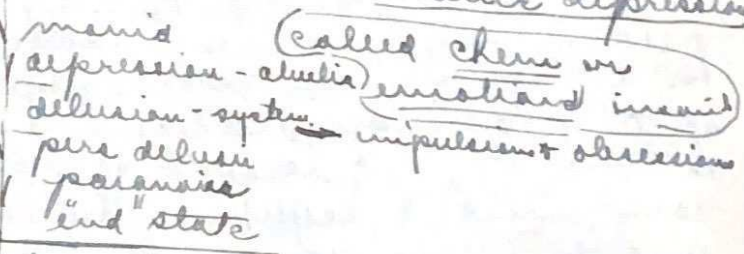 depression
mania (called chem or
depression - abulia) emotional insanit
delusion - system → impulsions & obsessions
pers delusn
paranoias
"end" state